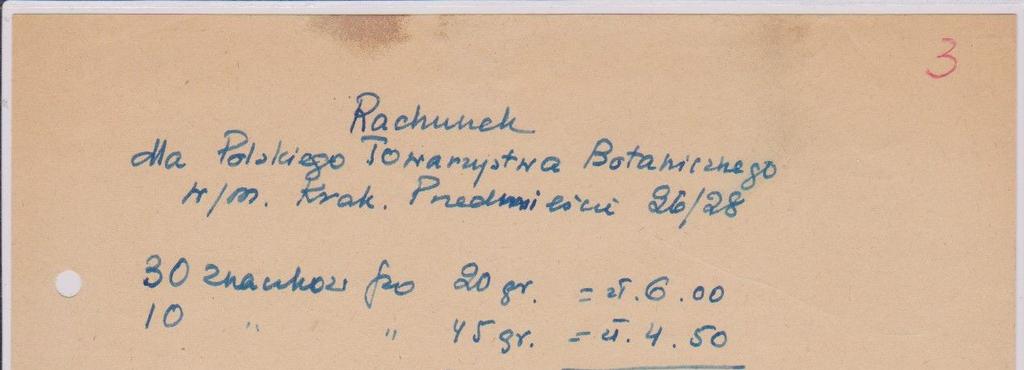 3
Rachunek
dla Polskiego Towarzystwa Botanicznego
w/m. Krak. Przedmieście 26/28
30 znaczków po 20 gr. = zł. 6.00
10 " " 45 gr. = zł. 4.50